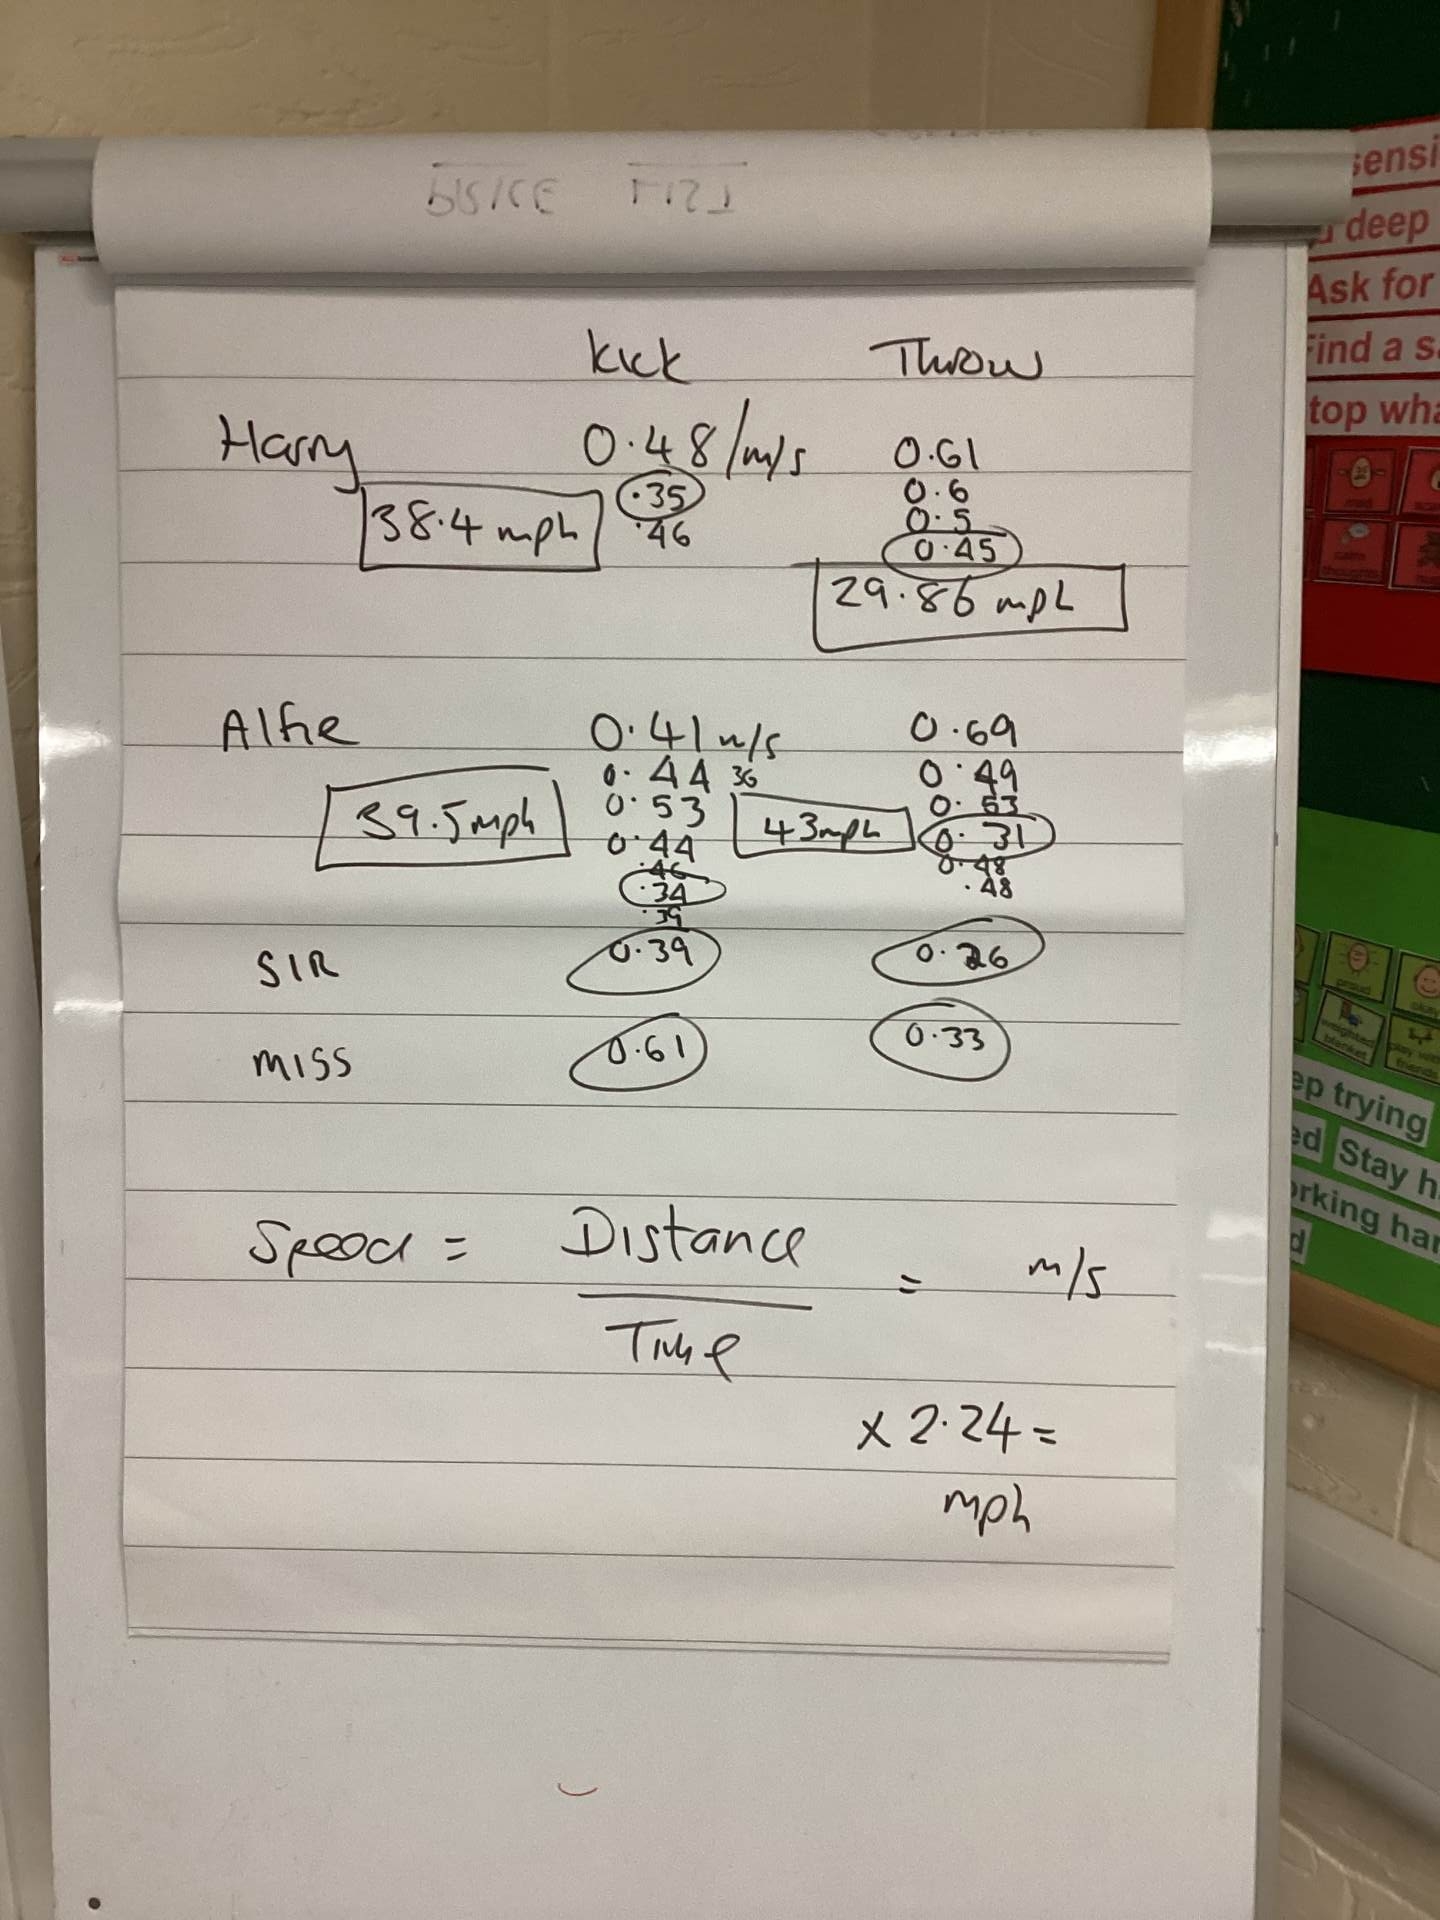 PRICE LIST
Kick Throw
Harry 0.48/m/s 0.61
.35 0.6
38.4 mph .46 0.5
0.45
29.86 mph
Alfie 0.41 m/s 0.69
0.44 36 0.49
0.53 0.53
39.5mph 43mph 0.31
0.44 0.48
.46 .48
.34
.39
SIR 0.39 0.26
MISS 0.61 0.33
Speed = Distance = m/s
Time
x 2.24 =
mph
deep
Ask for
top
proud
weighted
blanket
friends
trying
Stay